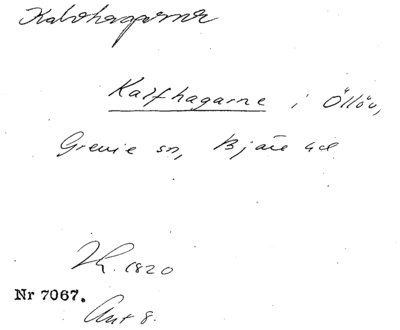 Kalvhagarna
Kalfhagarne i Öllöv,
Grevie sn, Bjäre hd
1820
Nr 7067.
Akt 8.